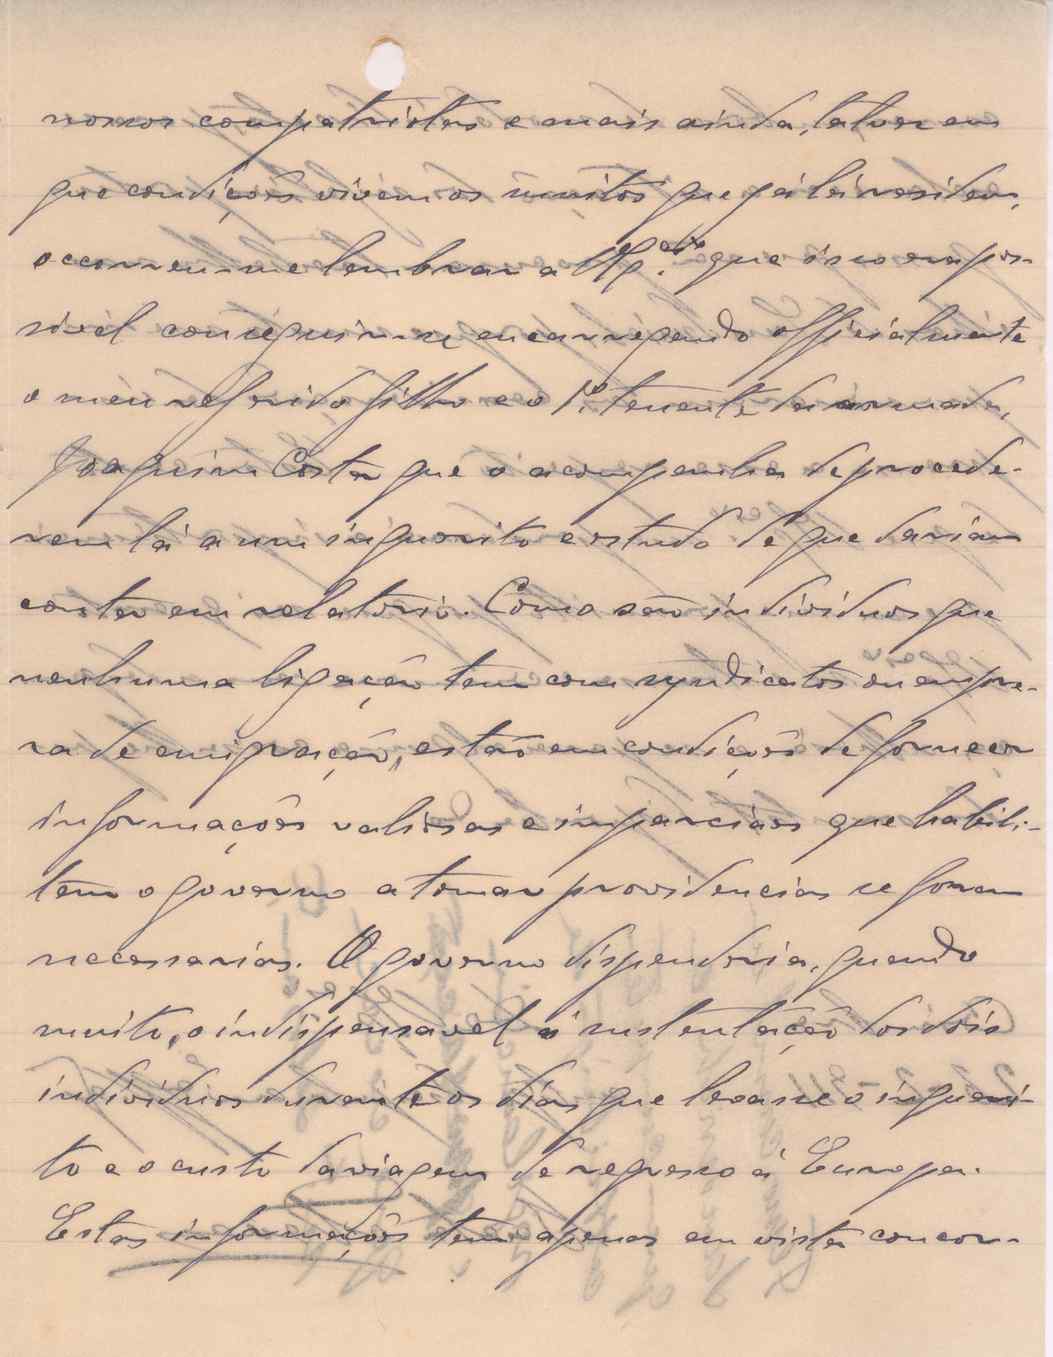 nossos compatriotas e mais ainda, talvez em
que condições vivem os muitos que já lá residem,
occorreu-me lembrar a V. Ex.ª que isso era pos-
sivel conseguir-se encarregando officialmente
o meu referido filho e o 1º tenente da armada,
Joaquim Costa que o acompanha de procede-
rem lá a um inquerito e estudo de que dariam
conta em relatorio. Como são individuos que
nenhuma ligação tem com syndicatos ou empre-
sa de emigração, estão em condições de fornecer
informações valiosas e imparciaes que habili-
tem o governo a tomar providencias se forem
necessarias. O governo dispenderia, quando
muito, o indispensavel á sustentação dos dois
individuos durante os dias que levasse o inqueri-
to e o custo da viagem de regresso á Europa.
Estas informações tem apenas em vista concor-